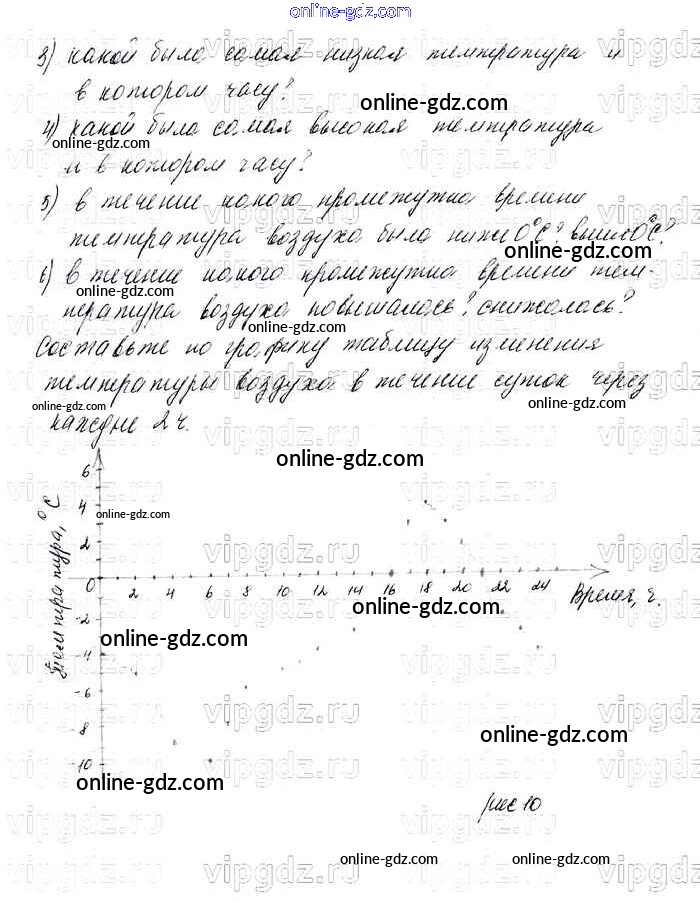 online-gdz.com
3) какой была самая низкая температура и
в котором часу?
online-gdz.com
4) какой была самая высокая температура
и в котором часу?
5) в течение какого промежутка времени
температура воздуха была ниже 0°С? выше 0°С?
6) в течение какого промежутка времени тем-
online-gdz.com
пература воздуха повышалась? снижалась?
online-gdz.com
Составьте по графику таблицу изменения
температуры воздуха в течение суток через
online-gdz.com
online-gdz.com
каждые 2 ч.
online-gdz.com
6
4
online-gdz.com
2
0
2 4 6 8 10 12 14 16 18 20 22 24
Время, ч.
online-gdz.com
-2
online-gdz.com
-4
Температура, °С
-6
-8
online-gdz.com
-10
online-gdz.com
рис 10
online-gdz.com
online-gdz.com
vipgdz.ru